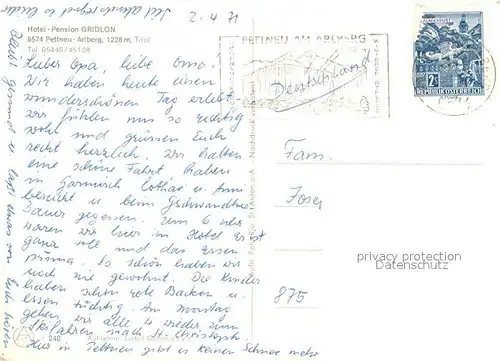 2. 4. 71
Hotel-Pension GRIDLON
6574 Pettneu-Arlberg, 1228 m, Tirol
Tel. 05448/45108
Lieber Opa, liebe Oma!
Wir haben heute einen
wunderschönen Tag erlebt
wir fühlen uns so richtig
wohl und grüssen Euch
recht herzlich. Wir hatten
eine schöne Fahrt, haben
in Garmisch Lothar u. Anni
besucht u. beim Gschwandtner
Bauer gegessen. Zum 6 Uhr
waren wir hier im Hotel. Es ist
ganz voll und das Essen
prima. So schön haben wir
noch nie gewohnt. Die Kinder
haben schön rote Backen u.
essen tüchtig. Am Montag
gehen wir alle 4 wieder zum
Skifahren nach St. Christoph.
Hier in Pettneu gibt es keinen Schnee mehr
Bleibt gesund u. laßt etwas von Euch hören
240
PETTNEU AM ARLBERG
Deutschland
2 S
REPUBLIK ÖSTERREICH
Fam.
Josef
875
privacy protection